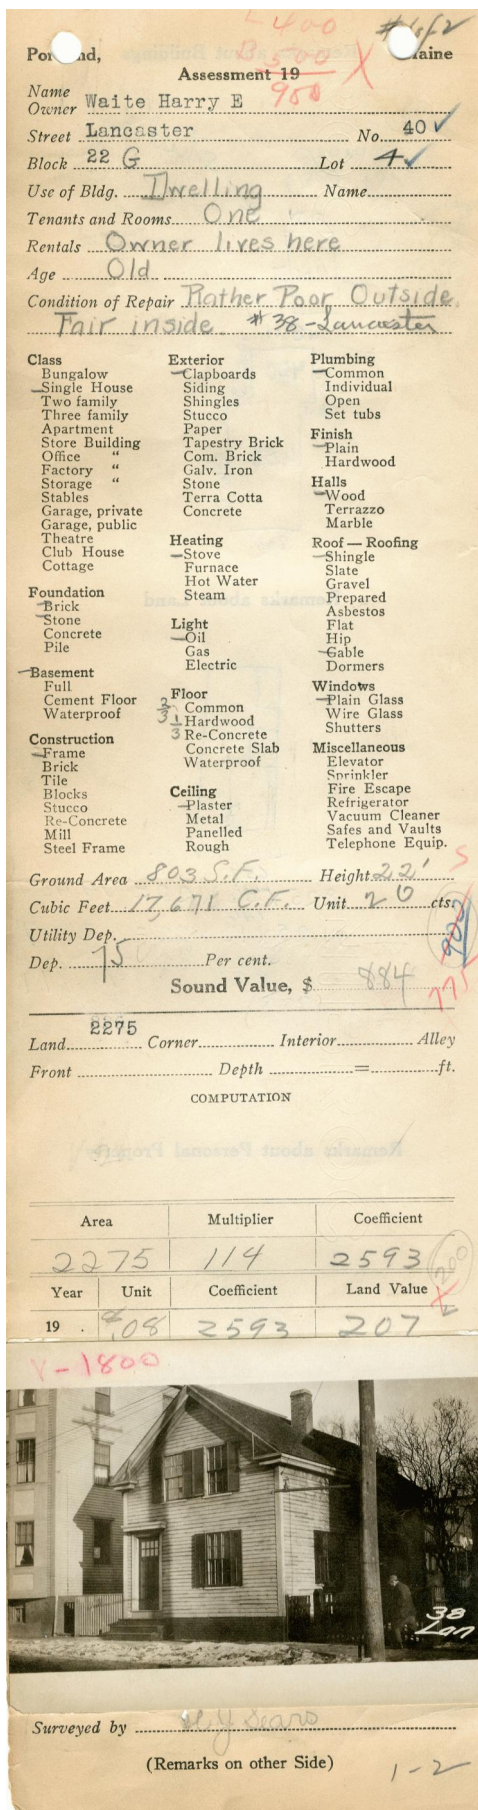 L 400 #1 of 2
B 500
900
Portland, Maine
Assessment 19
Name
Owner Waite Harry E
Street Lancaster No. 40
Block 22 G Lot 4
Use of Bldg. Dwelling Name
Tenants and Rooms One
Rentals Owner lives here
Age Old
Condition of Repair Rather Poor Outside
Fair inside #38-Lancaster
Class
Bungalow
Single House
Two family
Three family
Apartment
Store Building
Office "
Factory "
Storage "
Stables
Garage, private
Garage, public
Theatre
Club House
Cottage
Foundation
Brick
Stone
Concrete
Pile
Basement
Full
Cement Floor
Waterproof
Construction
Frame
Brick
Tile
Blocks
Stucco
Re-Concrete
Mill
Steel Frame
Exterior
Clapboards
Siding
Shingles
Stucco
Paper
Tapestry Brick
Com. Brick
Galv. Iron
Stone
Terra Cotta
Concrete
Heating
Stove
Furnace
Hot Water
Steam
Light
Oil
Gas
Electric
Floor
2/3 Common
1/3 Hardwood
Re-Concrete
Concrete Slab
Waterproof
Ceiling
Plaster
Metal
Panelled
Rough
Plumbing
Common
Individual
Open
Set tubs
Finish
Plain
Hardwood
Halls
Wood
Terrazzo
Marble
Roof — Roofing
Shingle
Slate
Gravel
Prepared
Asbestos
Flat
Hip
Gable
Dormers
Windows
Plain Glass
Wire Glass
Shutters
Miscellaneous
Elevator
Sprinkler
Fire Escape
Refrigerator
Vacuum Cleaner
Safes and Vaults
Telephone Equip.
Ground Area 803 S.F. Height 22'
Cubic Feet 17,671 C.F. Unit 20 cts.
Utility Dep.
Dep. 75 Per cent.
Sound Value, $ 884
775
2275
Land Corner Interior Alley
Front Depth = ft.
COMPUTATION
Area Multiplier Coefficient
2275 114 2593
200
Year Unit Coefficient Land Value
19 .08 2593 207
V-1800
38
Lan
Surveyed by H J Sears
(Remarks on other Side)
1-2